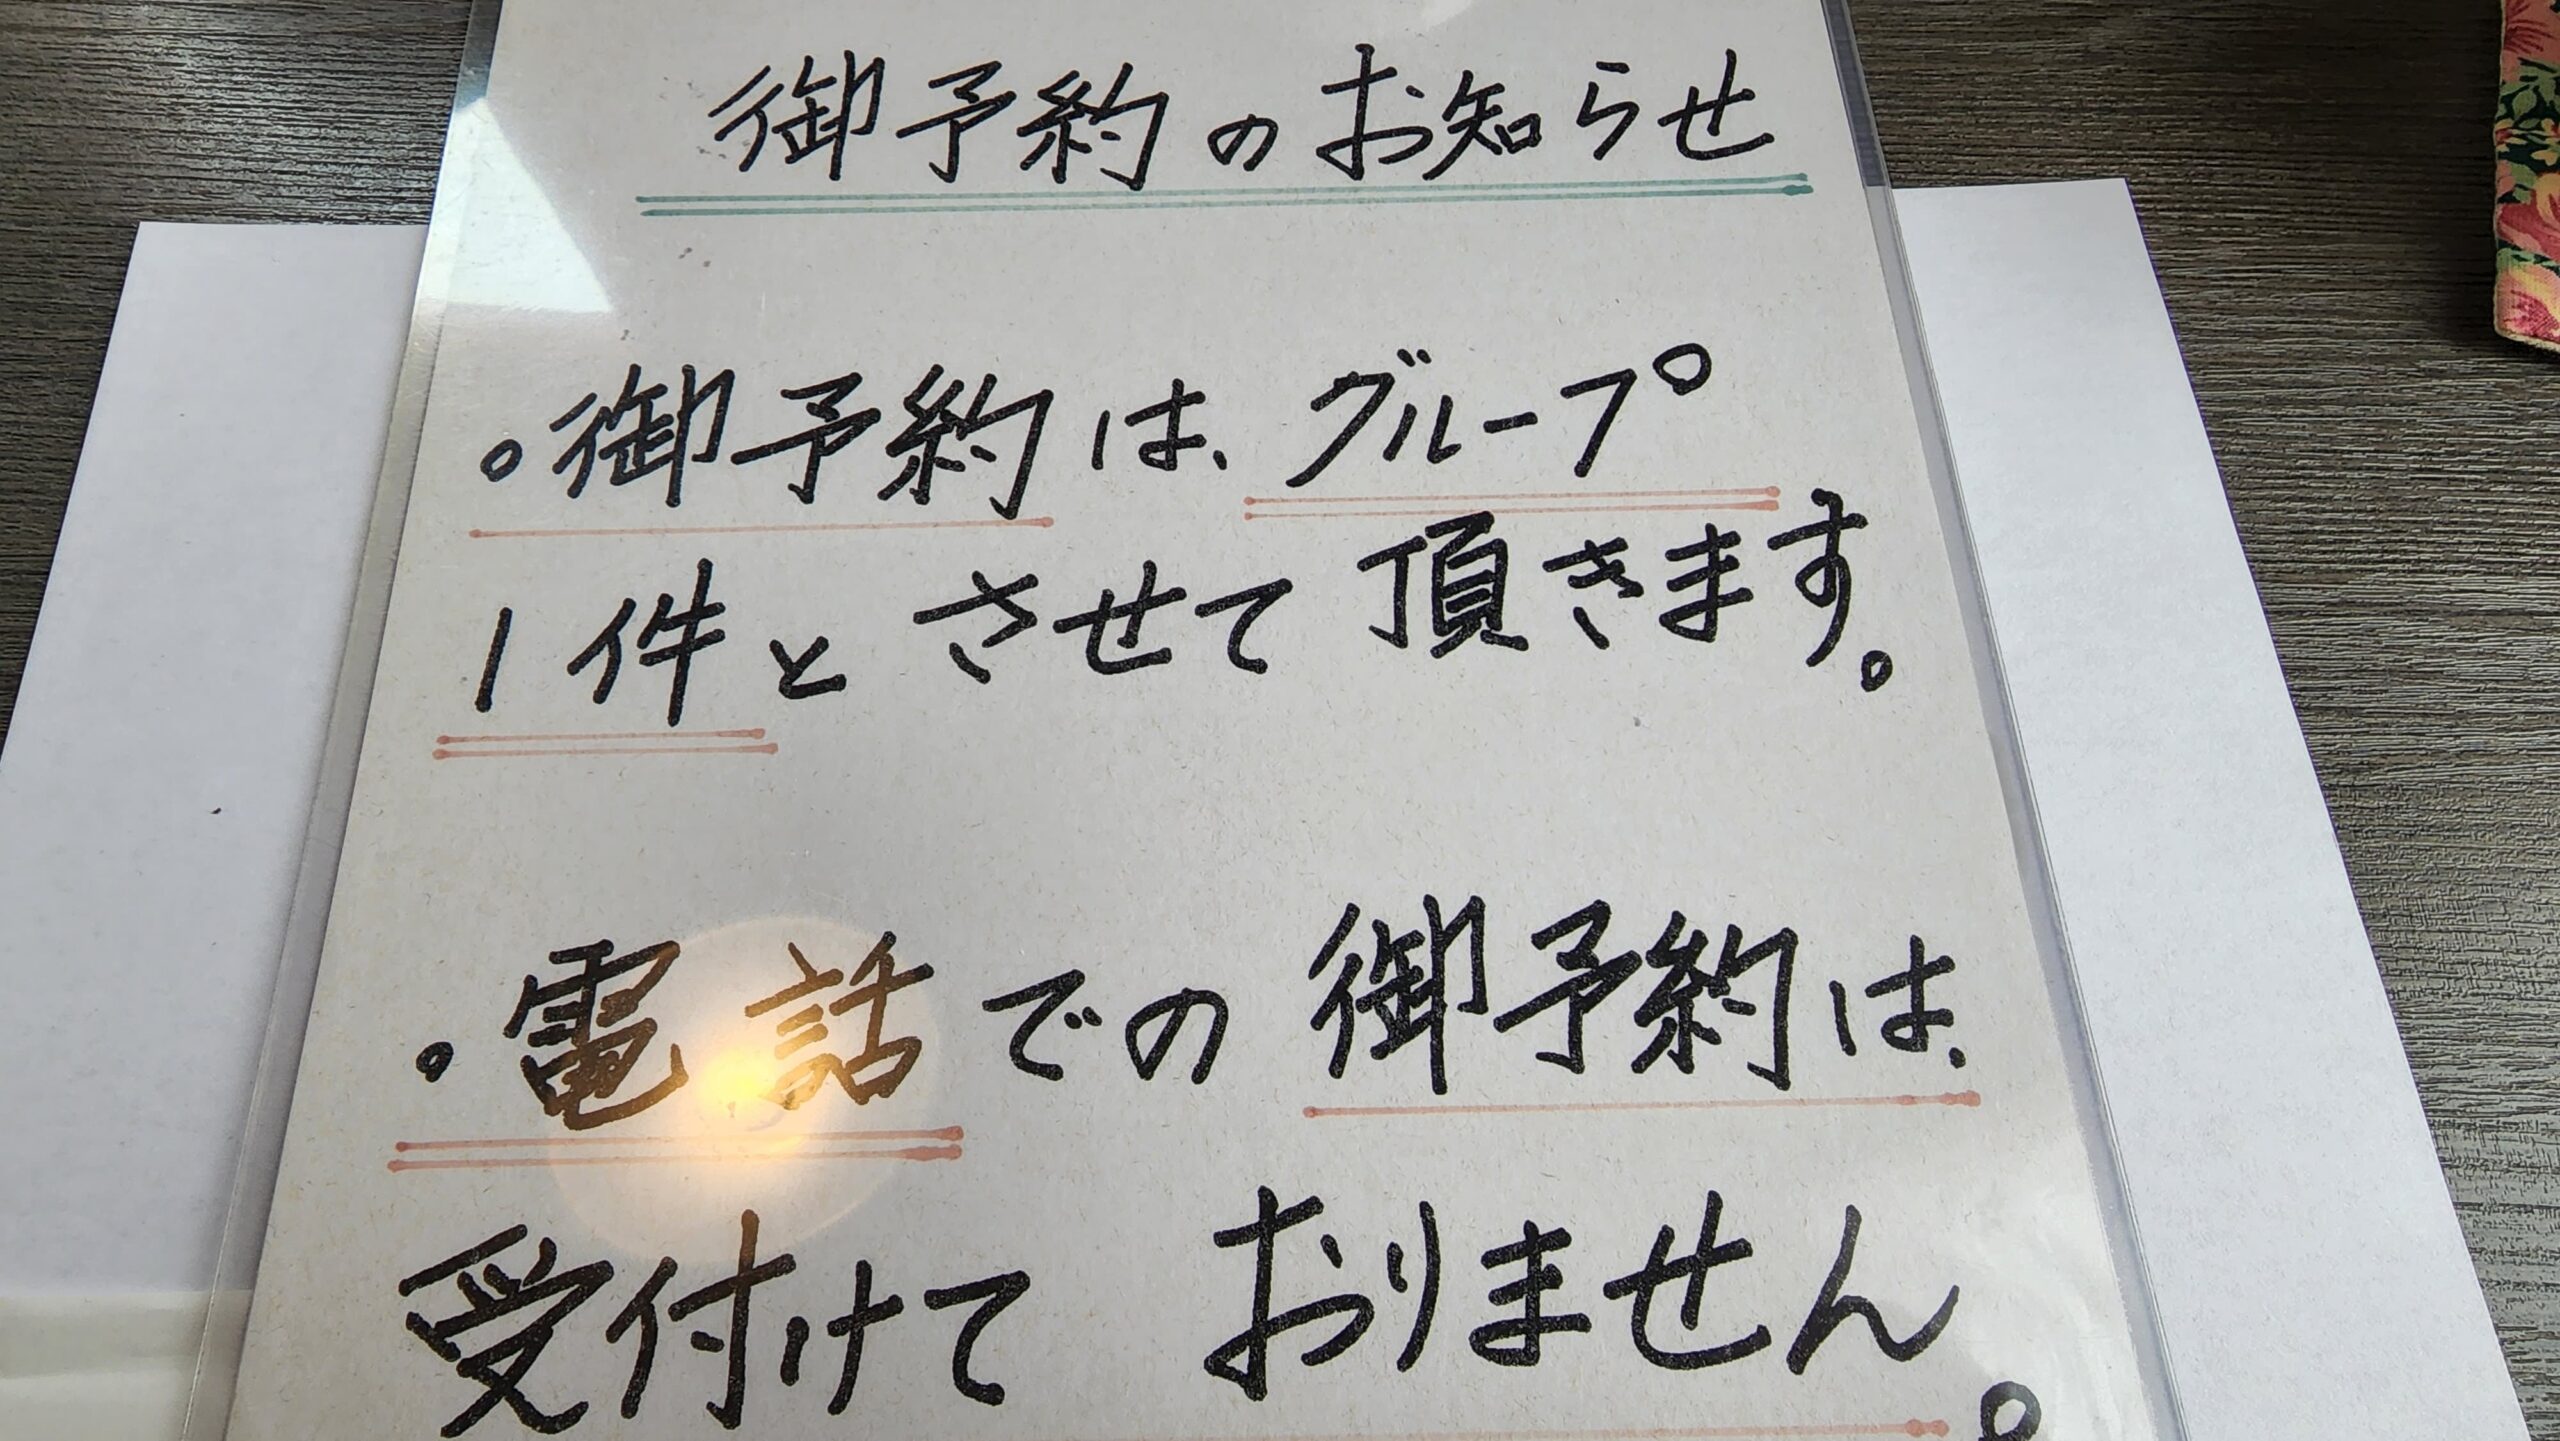 御予約のお知らせ
。御予約は、グループ
1件とさせて頂きます。
。電話での御予約は、
受付けておりません。